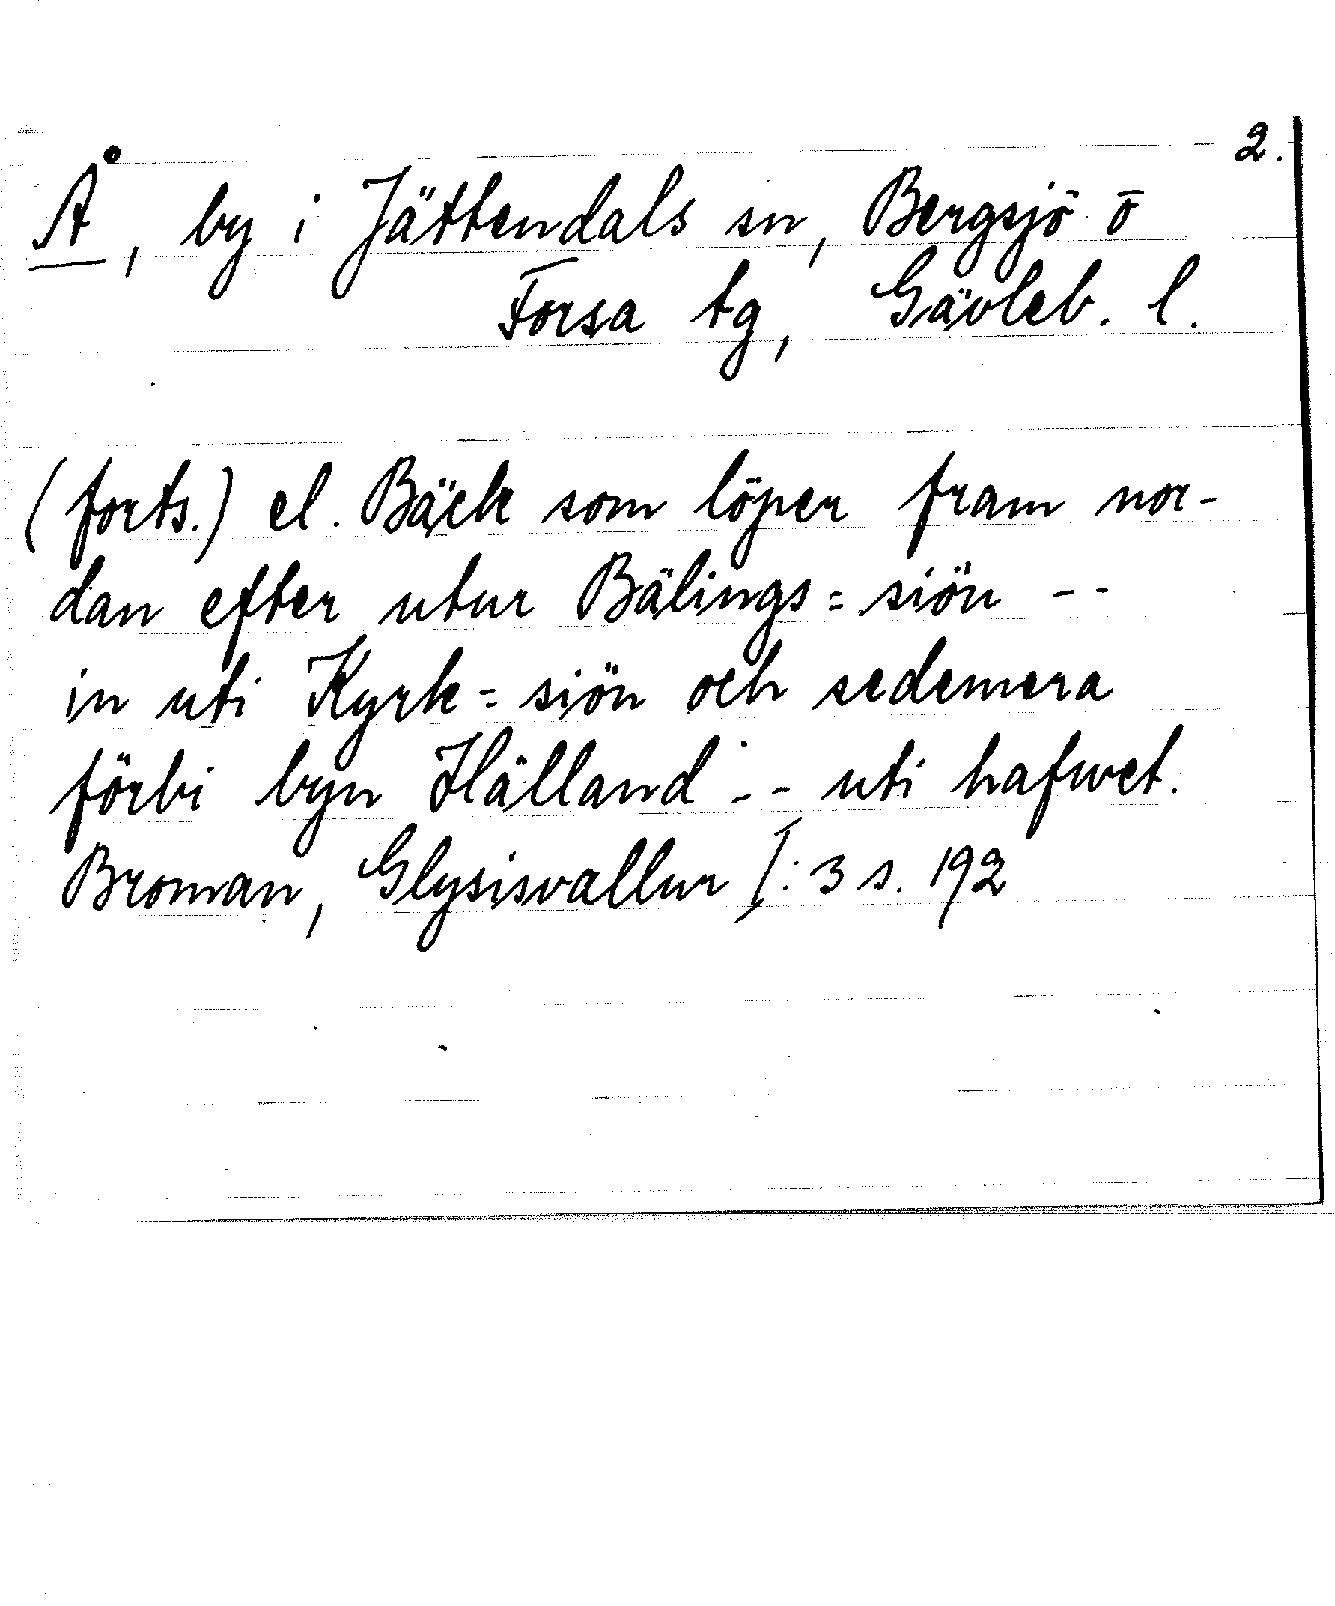 2.
Å, by i Jättendals sn, Bergsjö o
Forsa tg, Gävleb. l.
(forts.) el. Bäck som löper fram nor-
dan efter utur Bälings=siön --
in uti Kyrk=siön och sedemera
förbi byn Hälland -- uti hafwet.
Broman, Glysisvallur I: 3 s. 192